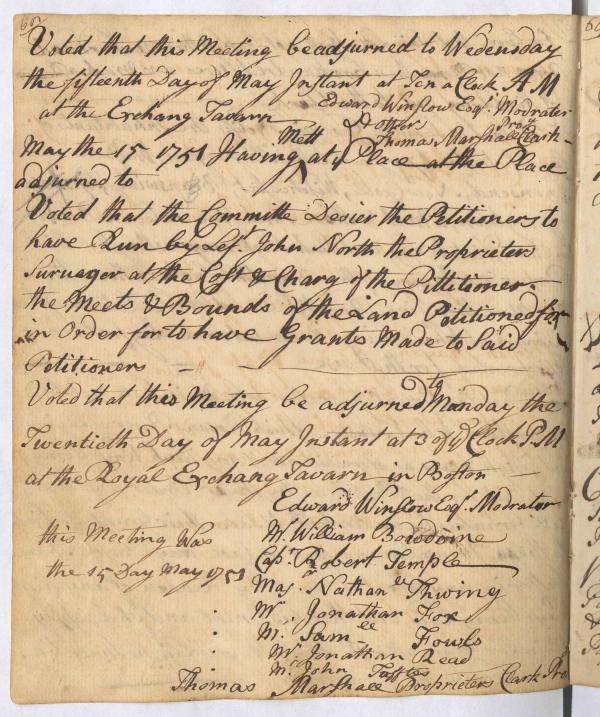 62
Voted that this Meeting be adjurned to Wedensday
the fifteenth Day of May Instant at Ten a Clock A M
at the Exchang Tavarn Edward Winslow Esqr. Modrater
Thomas Marshall Clark
Prop
May the 15 1751 Having Mett at Place at the Place
adjurned to
Voted that the Committe Desier the Petitioners to
have Run by Lef.t John North the Proprieters
Survager at the Cost & Charg of the Pittitioner
the Meets & Bounds of the Land Petitioned for
in Order for to have Grants Made to Said
Petitioners
Voted that this Meeting be adjurned to Monday the
Twentieth Day of May Instant at 3 of ye Clock P.M
at the Royal Exchang Tavarn in Boston
Edward Winslow Esqr. Modrator
this Meeting Was
the 15 Day May 1751
Mr. William Bowdoine
Capt. Robert Temple
Maj.r Nathan.ll Thwing
Mr. Jonathan Fox
Mr. Sam.ll Fowls
Mr. Jonathan Read
Mr. John Tufftes
Thomas Marshall Proprieters Clark Pro